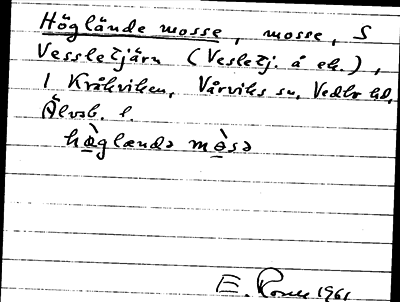 Höglände mosse, mosse, S
Vessletjärn (Vesletj. å ek.),
I Kråkviken, Vårviks sn, Vedbo hd,
Älvsb. l.
hö̀glændə mö̀sə
E. 1961